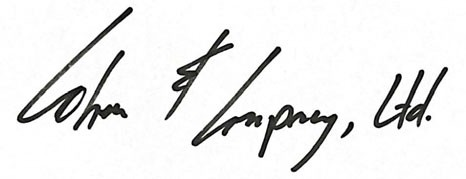 Cohen & Company, Ltd.